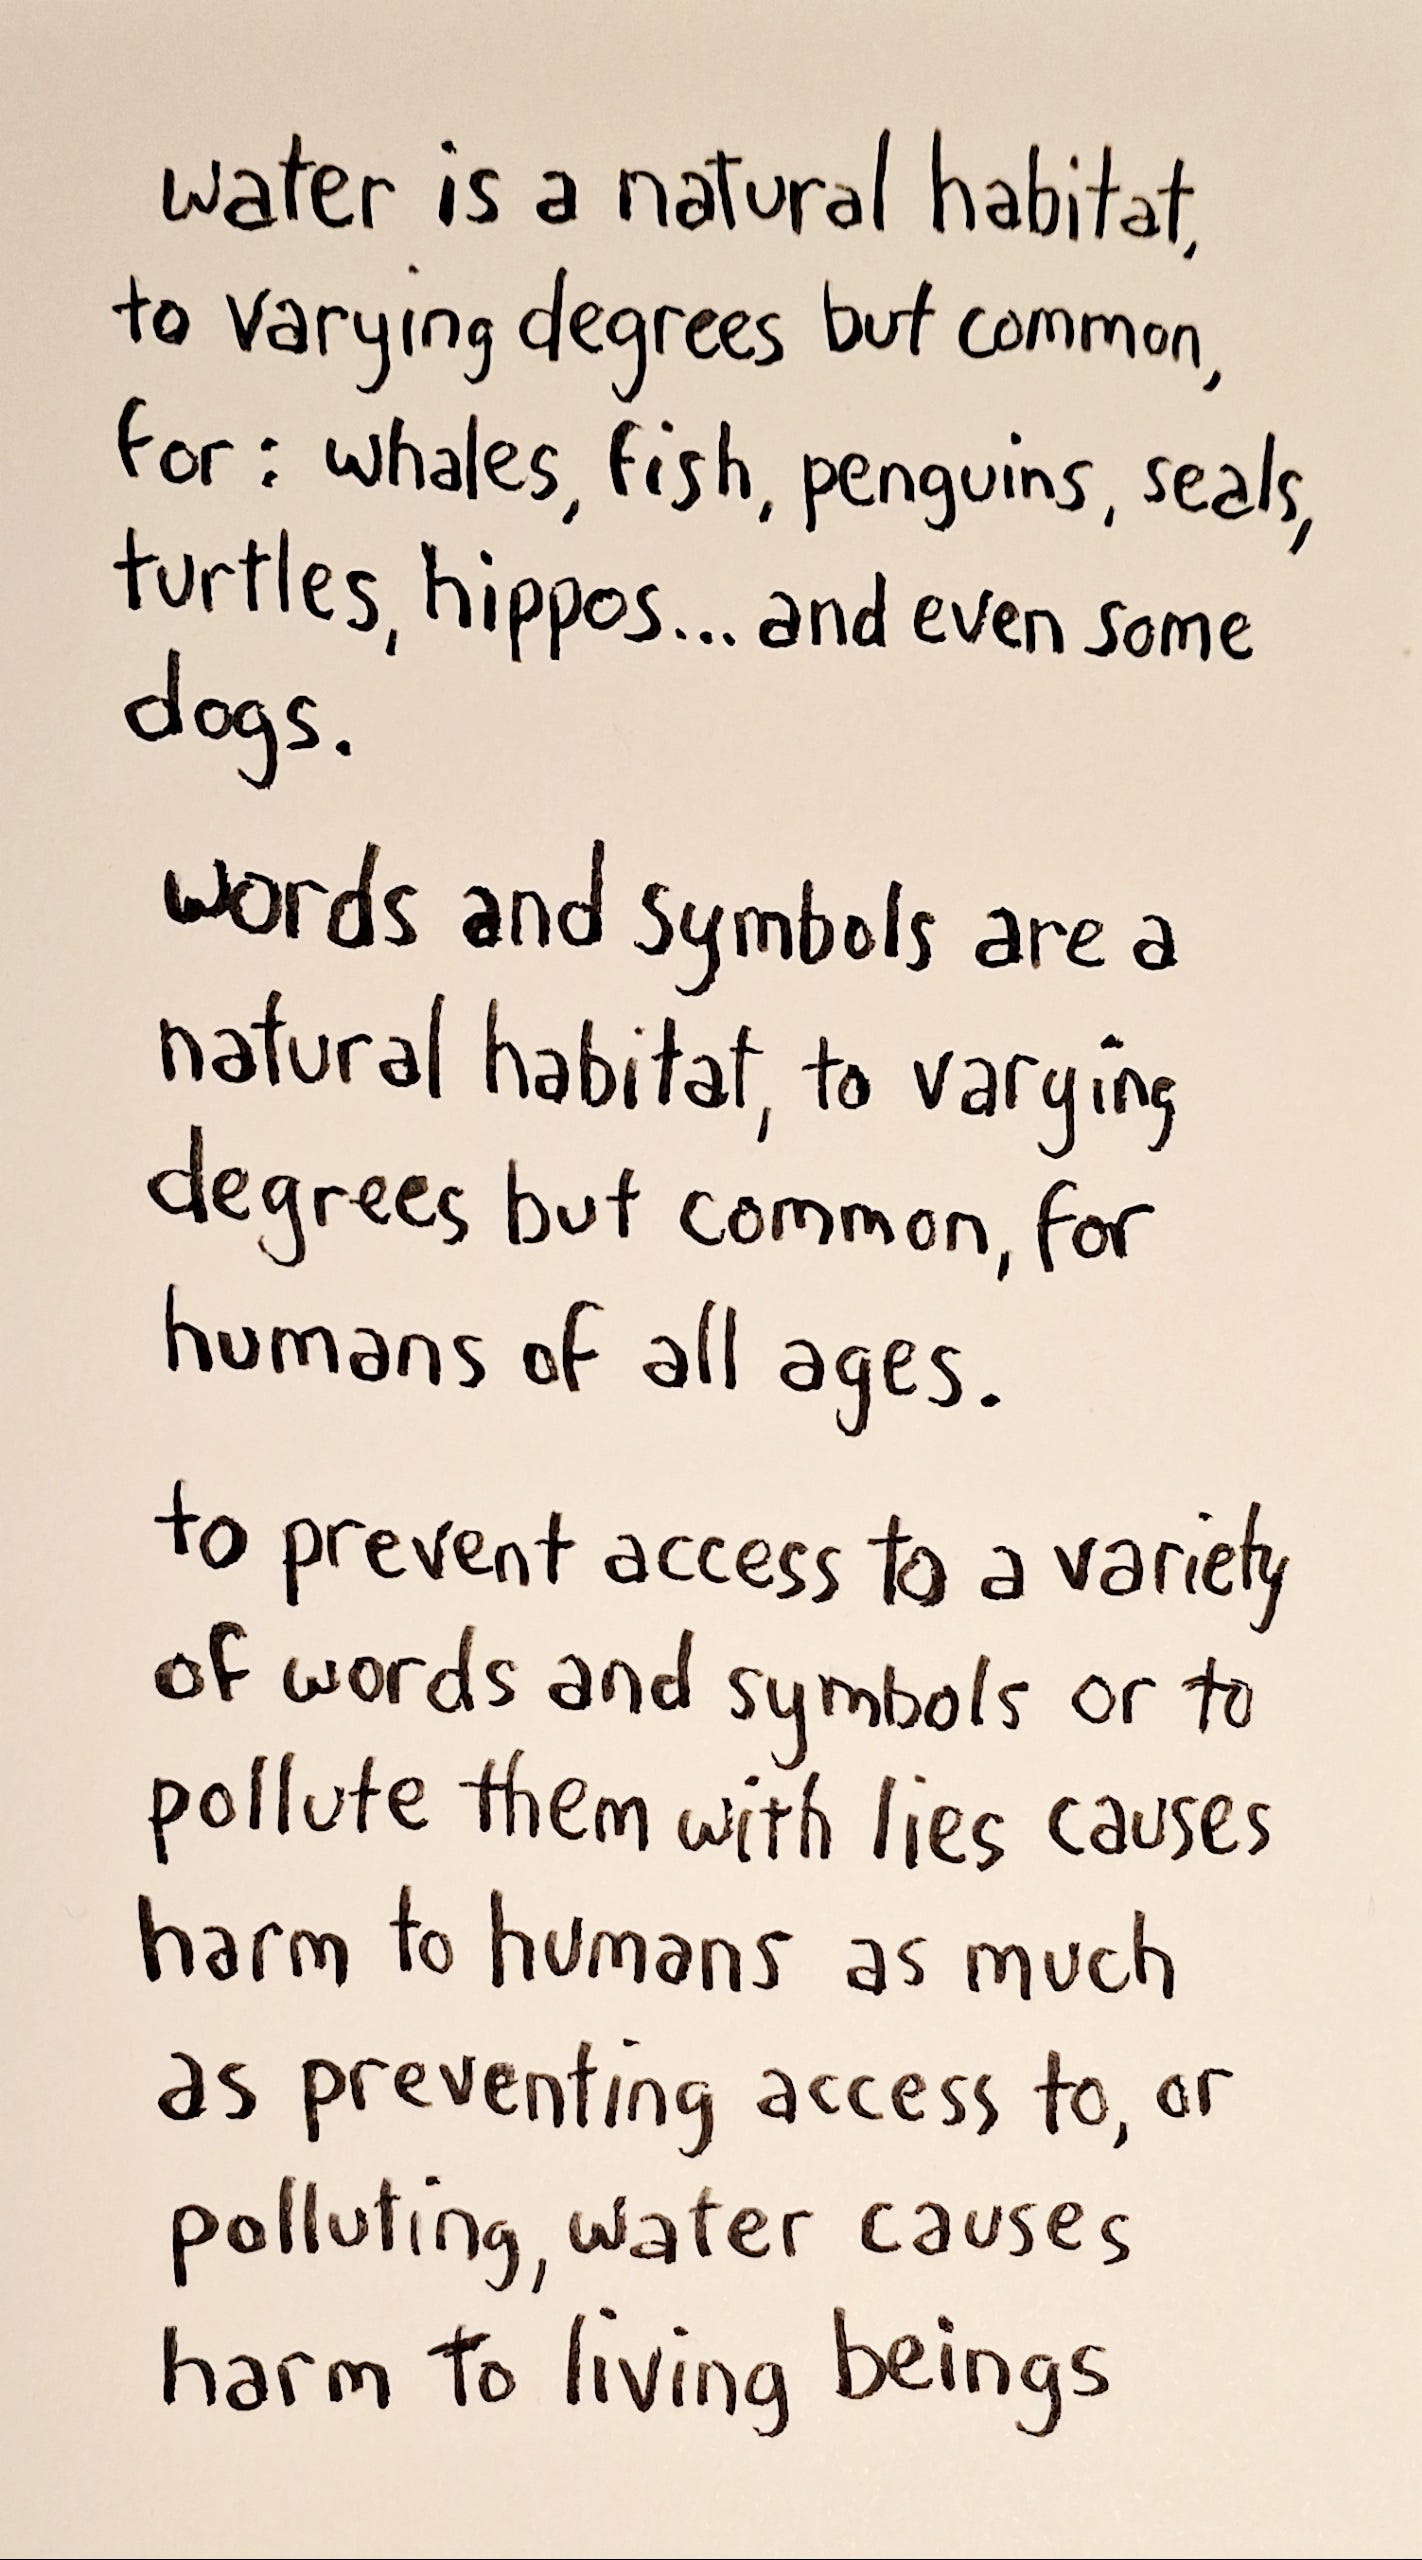 water is a natural habitat,
to varying degrees but common,
for: whales, fish, penguins, seals,
turtles, hippos... and even some
dogs.
words and symbols are a
natural habitat, to varying
degrees but common, for
humans of all ages.
to prevent access to a variety
of words and symbols or to
pollute them with lies causes
harm to humans as much
as preventing access to, or
polluting, water causes
harm to living beings